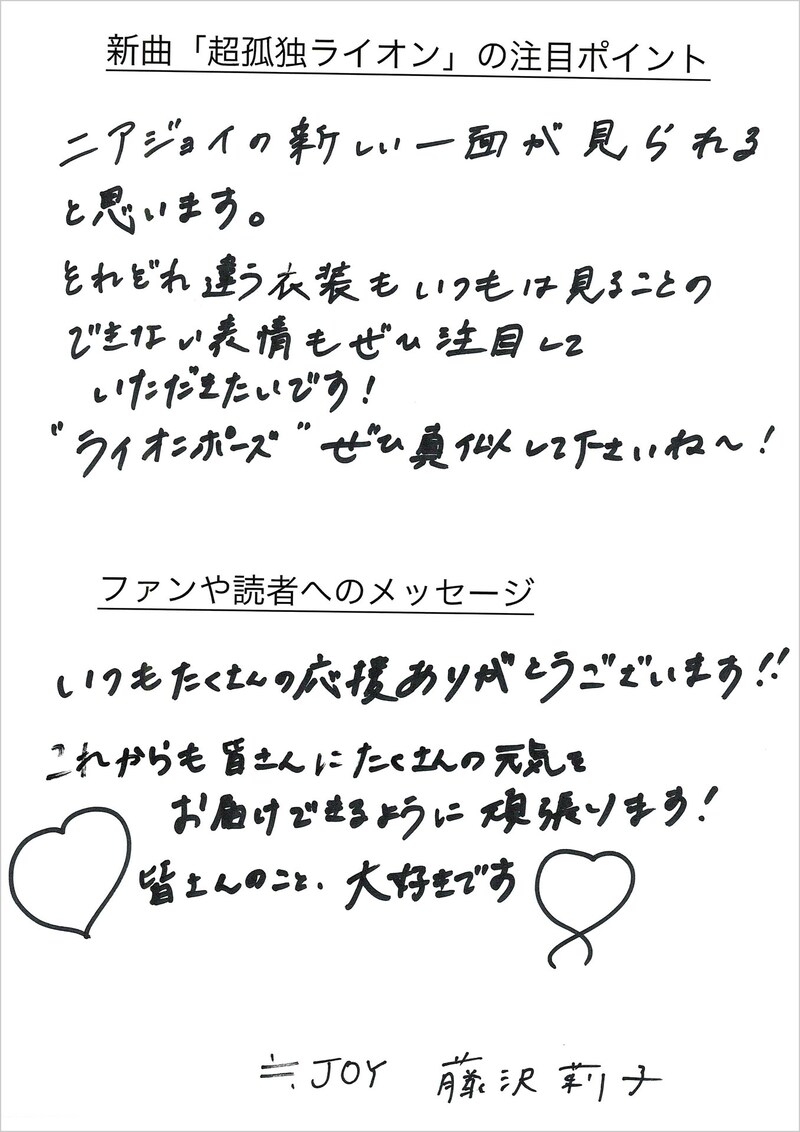 新曲「超孤独ライオン」の注目ポイント
ニアジョイの新しい一面が見られる
と思います。
それぞれ違う衣装もいつもは見ることの
できない表情もぜひ注目して
いただきたいです!
"ライオンポーズ" ぜひ真似して下さいね〜!
ファンや読者へのメッセージ
いつもたくさんの応援ありがとうございます!!
これからも皆さんにたくさんの元気を
お届けできるように頑張ります!
皆さんのこと、大好きです
≒JOY 藤沢莉子